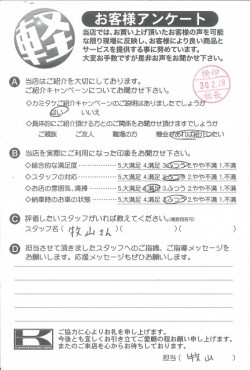 軽
お客様アンケート
当店では、お買い上げ頂いたお客様の声を可能
な限り現場に反映し、お客様により良い商品と
サービスを提供する事に努めています。
大変お手数ですが是非お声をお聞かせ下さい。
検印
30.2.09
社長
A 当店はご紹介を大切にしております。
ご紹介キャンペーンについてお聞かせ下さい。
◇カミタケご紹介キャンペーンのご説明はありましたでしょうか
はい いいえ
◇具体的にご紹介頂ける方とのご関係をお聞かせ頂けますでしょうか
ご親族 ご友人 職場の方 機会があれば紹介したい
B 当店を実際にご利用になった印象をお聞かせ下さい。
◇総合的な満足度 5.大満足 4.満足 3.ふつう 2.やや不満 1.不満
◇スタッフの対応 5.大満足 4.満足 3.ふつう 2.やや不満 1.不満
◇お店の雰囲気、清掃 5.大満足 4.満足 3.ふつう 2.やや不満 1.不満
◇納車時のお車の状態 5.大満足 4.満足 3.ふつう 2.やや不満 1.不満
C 評価したいスタッフがいれば教えてください。(複数回答可)
スタッフ名( 牧山さん )( )( )
D 担当させて頂きましたスタッフへのご指摘、ご指導メッセージを
お願いします。応援メッセージもぜひお願いします。
K
ご協力に心よりお礼を申し上げます。
今後とも宜しくお引き立てご愛顧の程お願い申し上げます。
またのご来店を心からお待ちしております。
担当( 牧山 )